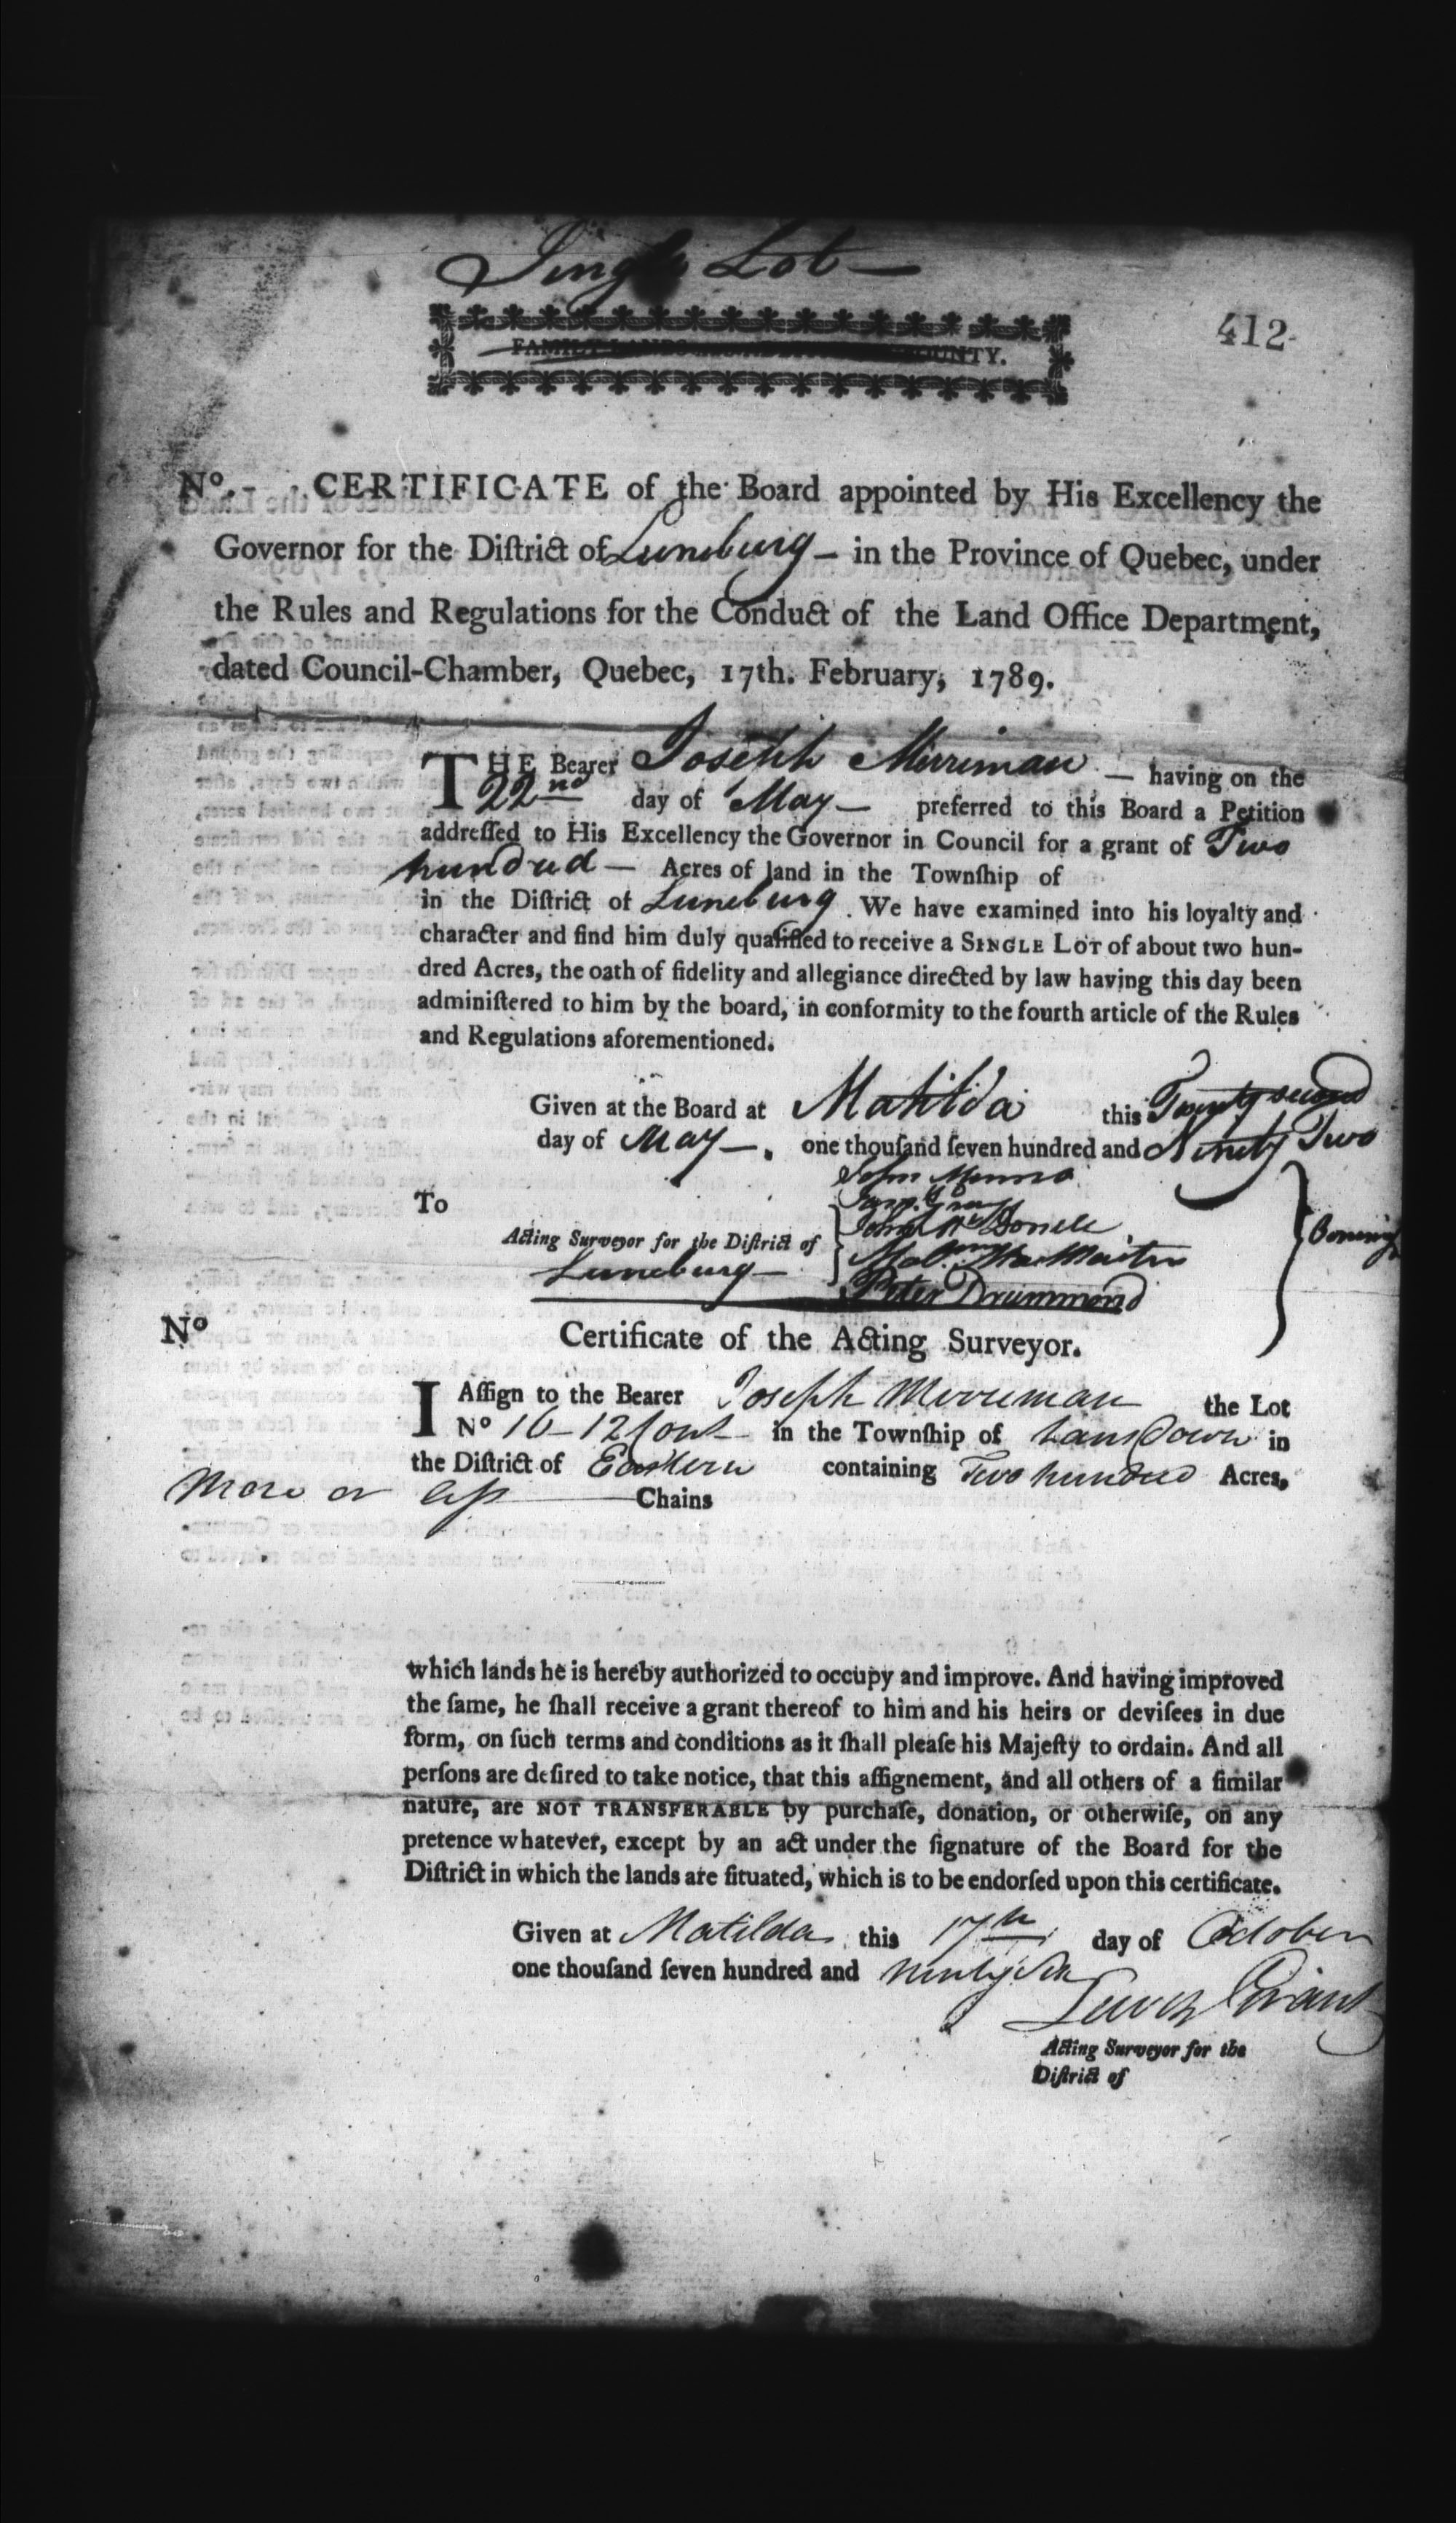 Single Lot —
412
FAMILY LANDS COUNTY.
No. - CERTIFICATE of the Board appointed by His Excellency the
Governor for the Diſtrict of Luneburg — in the Province of Quebec, under
the Rules and Regulations for the Conduct of the Land Office Department,
dated Council-Chamber, Quebec, 17th. February, 1789.
THE Bearer Joseph Merriman — having on the
22nd day of May — preferred to this Board a Petition
addreſſed to His Excellency the Governor in Council for a grant of Two
hundred — Acres of land in the Townſhip of
in the Diſtrict of Luneburg. We have examined into his loyalty and
character and find him duly qualified to receive a SINGLE LOT of about two hun-
dred Acres, the oath of fidelity and allegiance directed by law having this day been
adminiſtered to him by the board, in conformity to the fourth article of the Rules
and Regulations aforementioned.
Given at the Board at Matilda this Twenty second
day of May —. one thouſand ſeven hundred and Ninety Two
John Munro
To
Jam. Gray
Acting Surveyor for the Diſtrict of
Luneburg —
Peter Drummond
No Certificate of the Acting Surveyor.
I Aſſign to the Bearer Joseph Merriman the Lot
No 16 - 12 Cont in the Townſhip of Lansdown in
the Diſtrict of Eastern containing Two hundred Acres,
More or leſs — Chains
which lands he is hereby authorized to occupy and improve. And having improved
the ſame, he ſhall receive a grant thereof to him and his heirs or deviſees in due
form, on ſuch terms and conditions as it ſhall pleaſe his Majeſty to ordain. And all
perſons are deſired to take notice, that this aſſignement, and all others of a ſimilar
nature, are NOT TRANSFERABLE by purchaſe, donation, or otherwiſe, on any
pretence whatever, except by an act under the ſignature of the Board for the
Diſtrict in which the lands are ſituated, which is to be endorſed upon this certificate.
Given at Matilda this 17th day of October
one thouſand ſeven hundred and ninety Six
Lewis Grant
Acting Surveyor for the
Diſtrict of